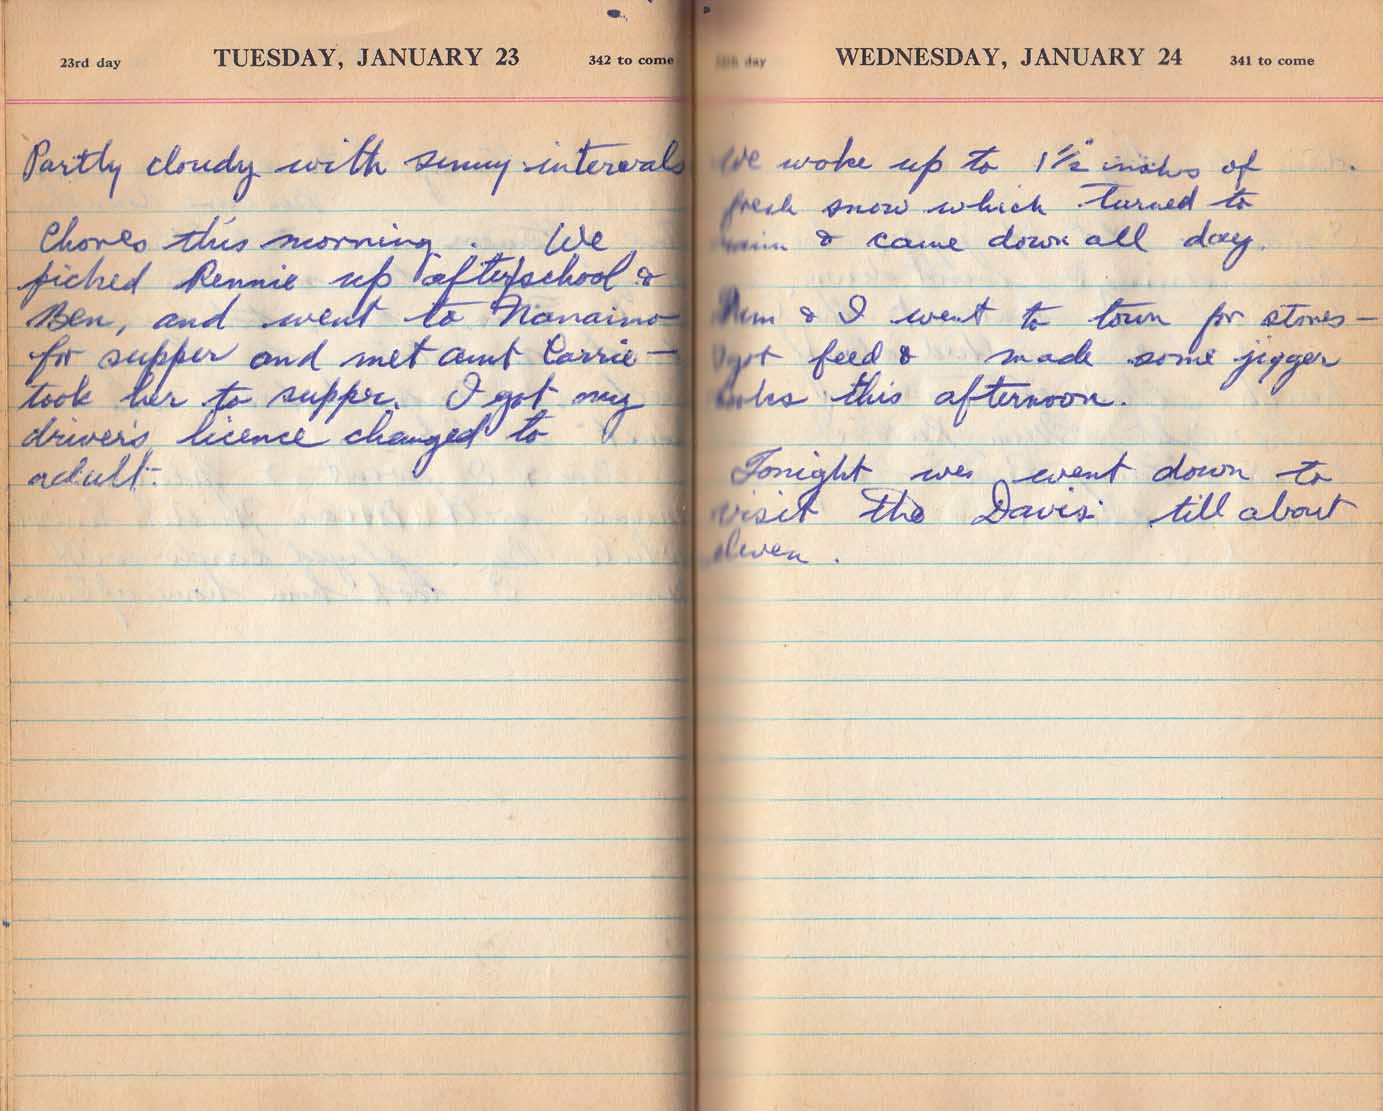 23rd day TUESDAY, JANUARY 23 342 to come
Partly cloudy with sunny intervals
Chores this morning. We
picked Rennie up after school &
Ben, and went to Nanaimo
for supper and met aunt Carrie —
took her to supper. I got my
driver's licence changed to
adult.
day WEDNESDAY, JANUARY 24 341 to come
We woke up to 1½" inches of
fresh snow which turned to
rain & came down all day.
& I went to town for stores —
got feed & made some jigger
this afternoon.
Tonight we went down to
visit the Davis' till about
eleven.